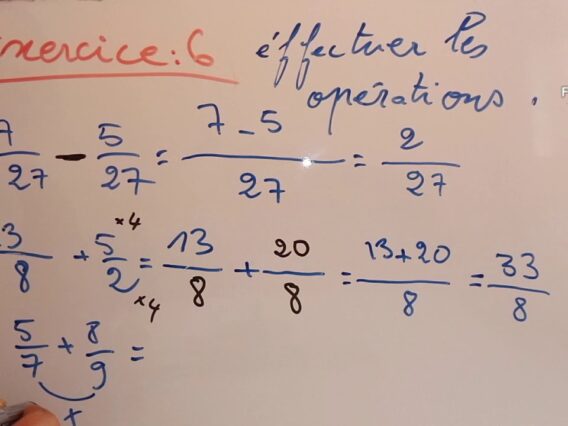 xercice: 6 éffectuer les
opérations.
7/27 - 5/27 = 7-5/27 = 2/27
3/8 + 5×4/2×4 = 13/8 + 20/8 = 13+20/8 = 33/8
5/7 + 8/9 =
×